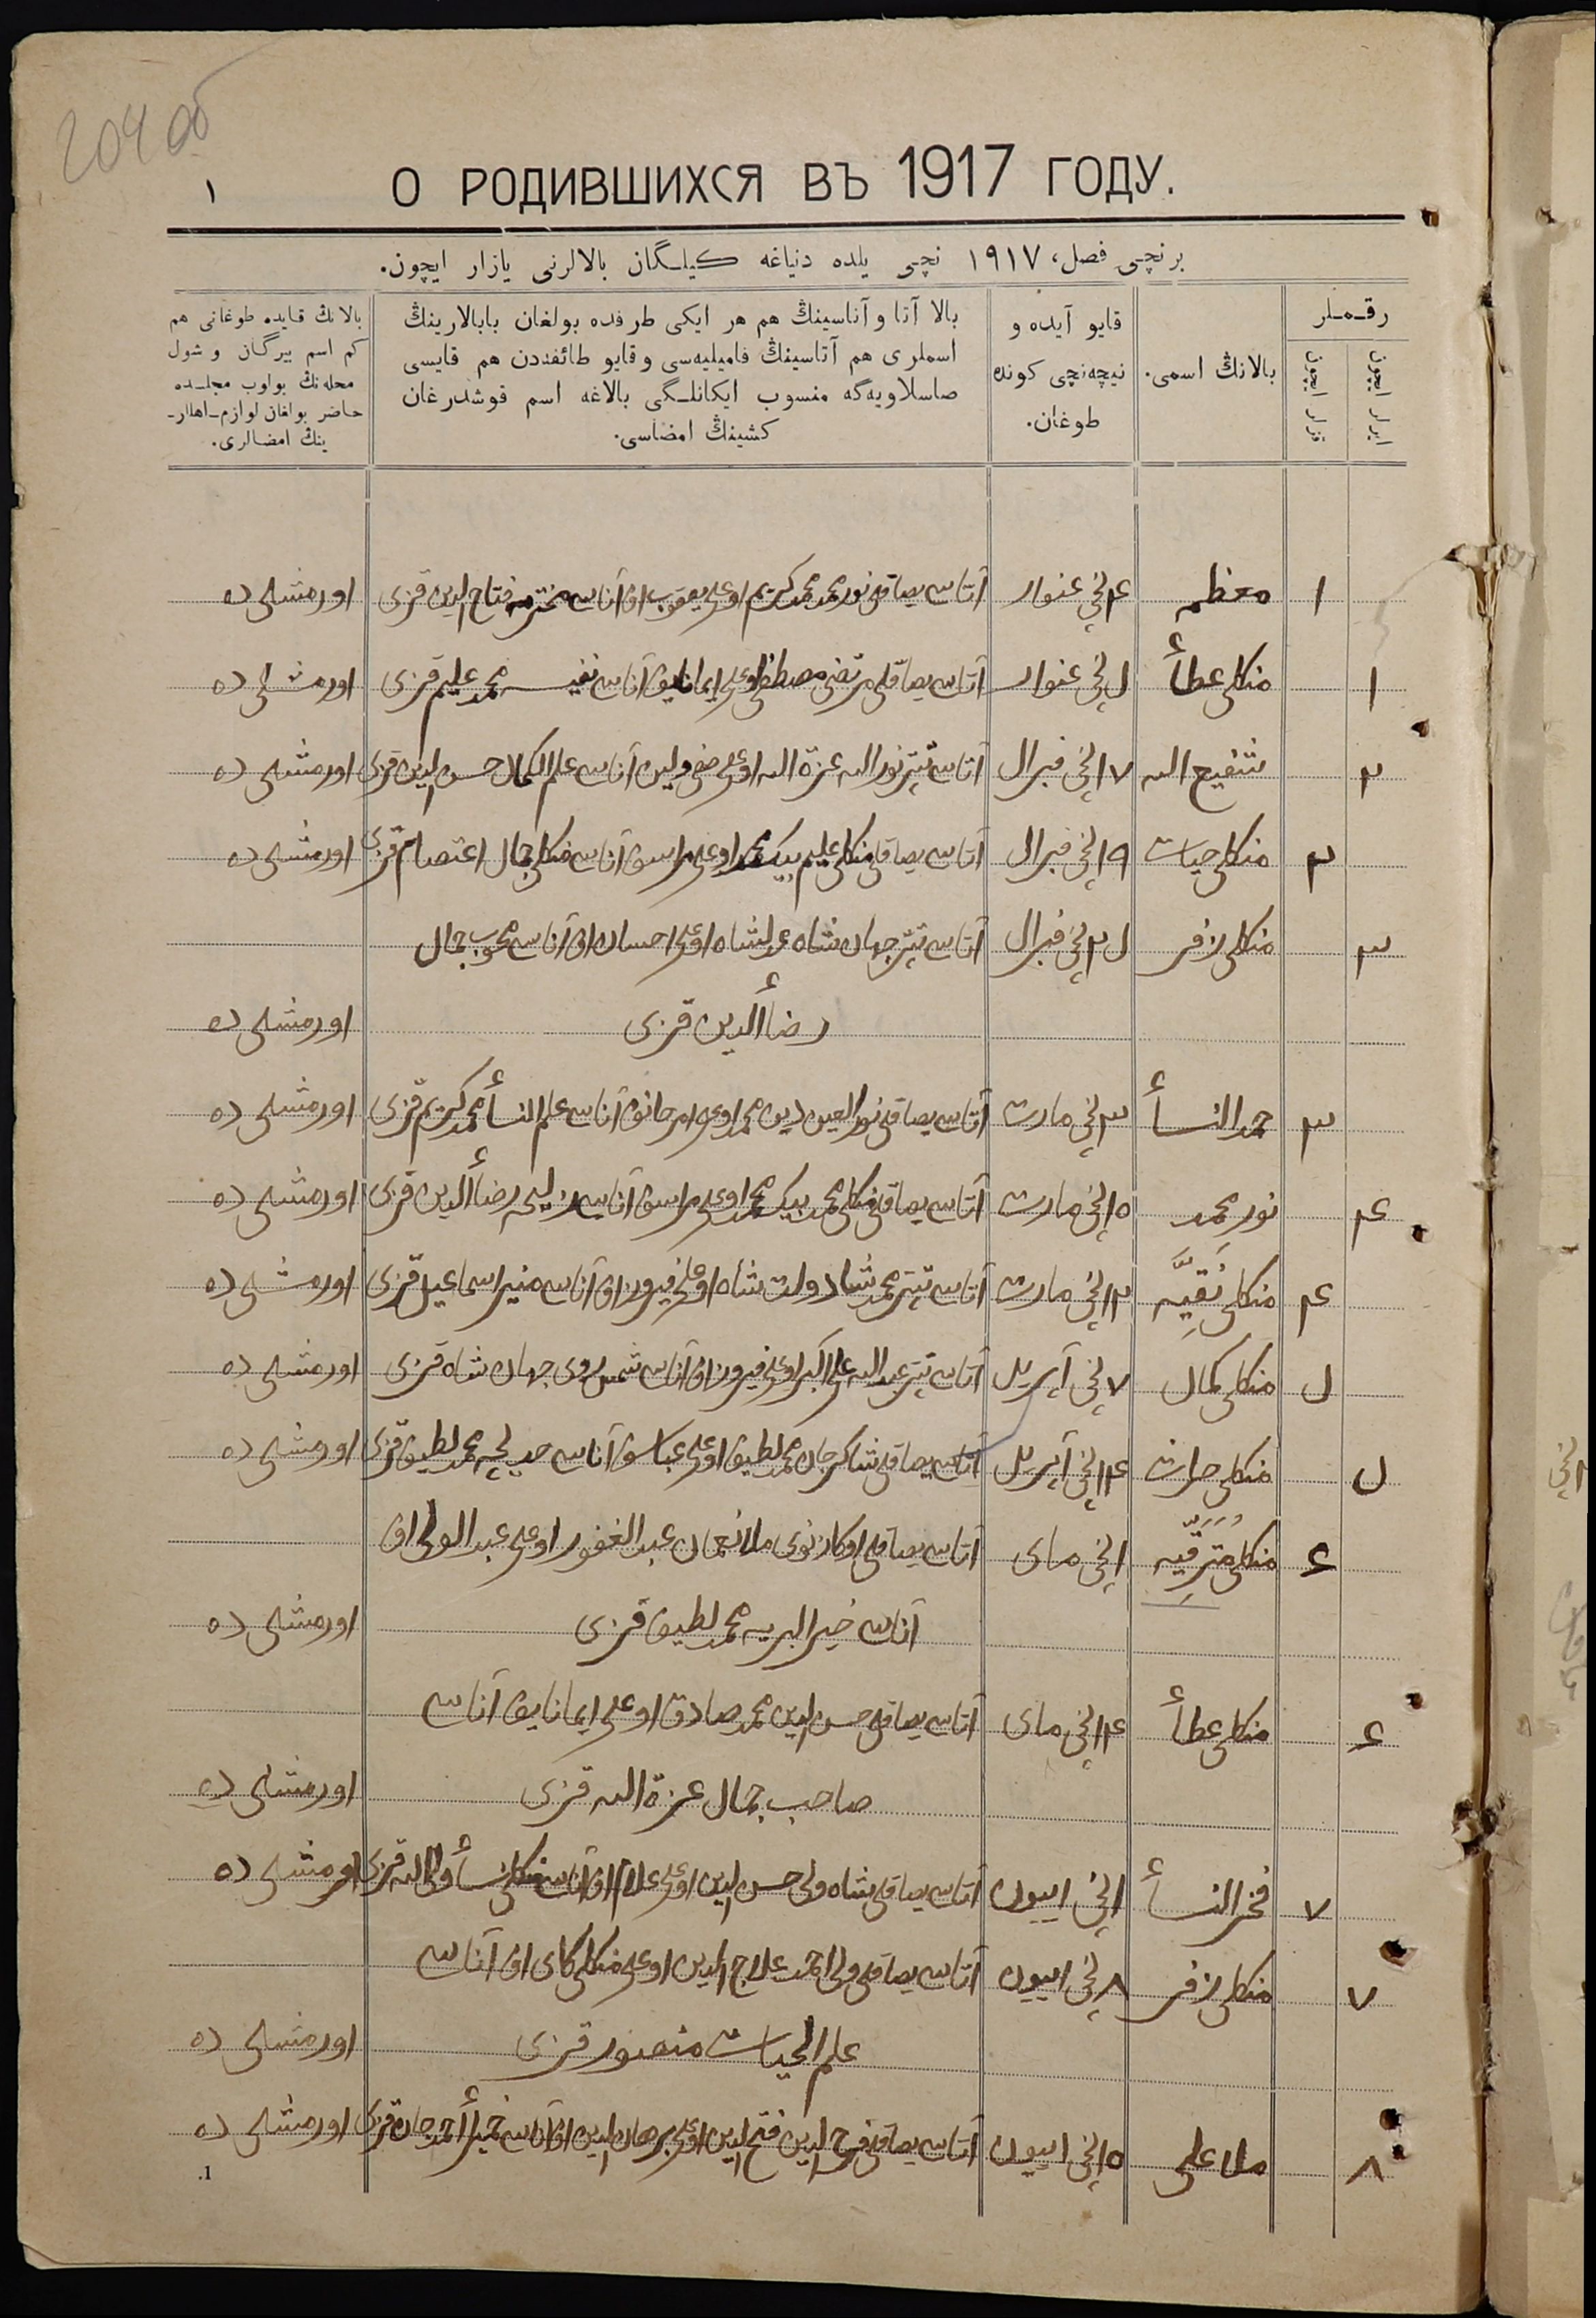 204 об
١
О РОДИВШИХСЯ ВЪ 1917 ГОДУ.
برنچی فصل، ١٩١٧ نچی یلده دنیاغه کیلـگان بالالرنی یازار ایچون.
رقـمـلر
ایرلر ایچون
قزلر ایچون
بالانڭ اسمی.
قایو آیده و
نیچه‌نچی کونده
طوغان.
بالا آتا و آناسینڭ هم هر ایکی طرفده بولغان بابالارینڭ
اسملری هم آتاسینڭ فامیلیه‌سی و قایو طائفه‌دن هم قایسی
صاسلاویه‌گه منسوب ایکانلـگی بالاغه اسم قوشدرغان
کشینڭ امضاسی.
بالانڭ قایده طوغانی هم
کم اسم بیرگان و شول
محله‌نڭ بولوب مجلـده
حاضر بولغان لوازم-اهللر-
ینڭ امضالری.
١ معظمه ٤نچی غنوار آتاسی یصاقلی نورمحمد محمدکریم اوغلی یعقوب اف آناسی محترمه فتاح الدین قزی اورمشلی ده
١ منکلی عطأ ٥نچی غنوار آتاسی یصاقلی مرتضی مصطفی اوغلی ایمانایف آناسی نفیسه محمدعلیم قزی اورمشلی ده
٢ شفیع الله ١٧نچی فبرال آتاسی تیتر نورالله عزة الله اوغلی آناسی علم الکمال حسن الدین قزی اورمشلی ده
٢ منکلی حیات ١٩نچی فبرال آتاسی یصاقلی منکلی علیم بیک محمد اوغلی آناسی منکلی جمال اعتصام قزی اورمشلی ده
٣ منکلی زفر ٢٥نچی فبرال آتاسی تیتر جهان شاه عدلشاه اوغلی احسان اف آناسی محبوب جمال
رضأ الدین قزی اورمشلی ده
٣ حمدالنسأ ٣نچی مارت آتاسی یصاقلی نورالعین دین محمد اوغلی آناسی علم النسأ محمدکریم قزی اورمشلی ده
٤ نورمحمد ١٥نچی مارت آتاسی یصاقلی منکلی محمد بیک محمد اوغلی آناسی زلیحه رضأ الدین قزی اورمشلی ده
٤ منکلی نقیّه ١٢نچی مارت آتاسی تیتر محمدشا دولت شاه اوغلی فیروز اف آناسی منیر اسماعیل قزی اورمشلی ده
٥ منکلی کمال ٧نچی آپریل آتاسی تیتر عبدالله علی اکبر اوغلی فیروز اف آناسی شمس روی جهان شاه قزی اورمشلی ده
٥ منکلی حارث ١٤نچی آپریل آتاسی یصاقلی شاکرجان محمدلطیف اوغلی عباسف آناسی خدیچه محمدلطیف قزی اورمشلی ده
٦ منکلی مترقیه ١نچی مای آتاسی یصاقلی اوکازنوی ملا نعمان عبدالغفور اوغلی عبدالولی اف
آناسی خیرالبریه محمدلطیف قزی اورمشلی ده
٦ منکلی عطأ ١٤نچی مای آتاسی یصاقلی حسن الدین محمدصادق اوغلی ایمانایف آناسی
صاحب جمال عزة الله قزی اورمشلی ده
٧ فخرالنسأ ١نچی اییون آتاسی یصاقلی شاه ولی حسن الدین اوغلی علام اف آناسی منکلی نسأ ولی الله قزی اورمشلی ده
٧ منکلی زفر ٨نچی اییون آتاسی یصاقلی ولی احمد علاج الدین اوغلی منکلی کای اف آناسی
علم الحیات منصور قزی اورمشلی ده
٨ ملا علی ١٥نچی اییون آتاسی یصاقلی فرح الدین فتح الدین اوغلی برهان الدین اف آناسی احمدجان قزی اورمشلی ده
1.